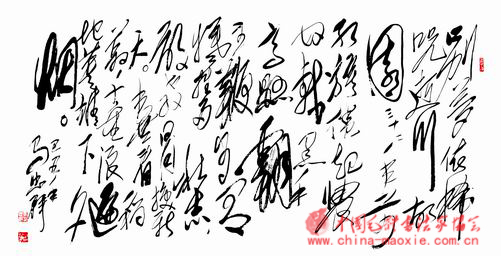 别梦依稀
咒逝川故
园三十二年前
红旗卷起農
奴戟黑手
高悬霸
主鞭为有
牺牲多壮志
敢教日月换新
天。喜看稻
菽千重浪遍
地英雄下夕
烟。
己丑年
www.china-maoxie.com.cn